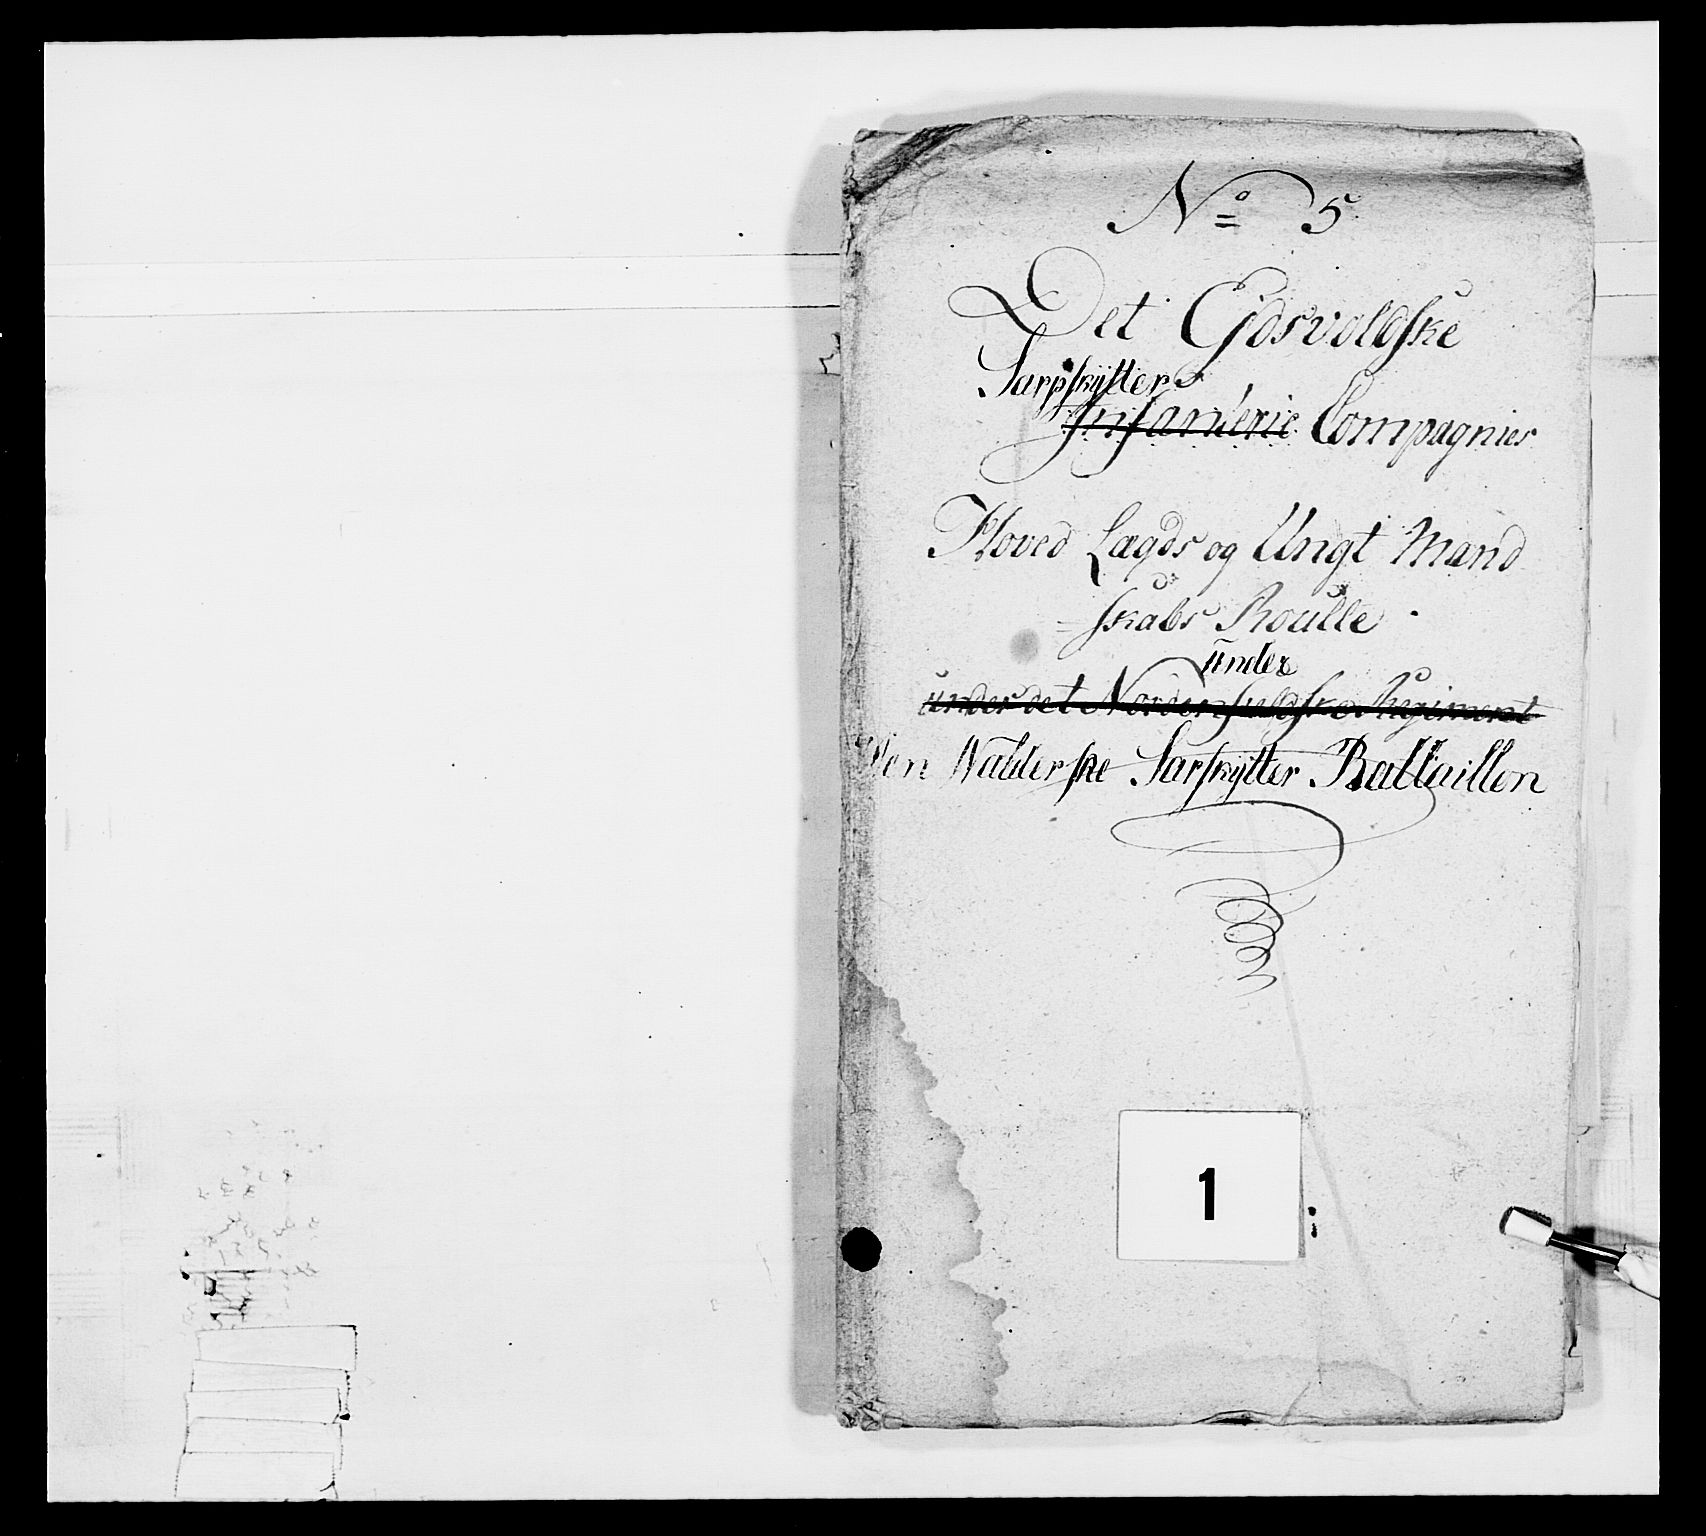 No 5
Det Eidsvoldske
Sarpskytter
Infanterie Compagnies
Hoved Lægds og Ungt Mand
skabs Roulle
under
under det Nordenfieldske Regiment
Den Walderske Sarpskytter Battaillon
1